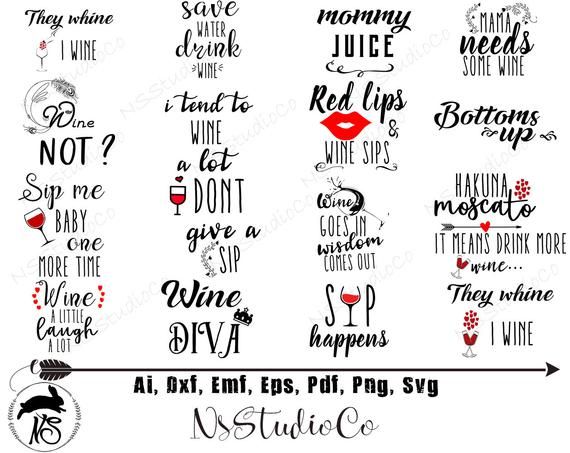 They whine
I WINE
save
WATER
drink
WINE
mommy
JUICE
MAMA
needs
SOME WINE
Wine
NOT?
i tend to
WINE
a lot
Red lips
&
WINE SIPS
Bottoms
up
Sip me
BABY
one
MORE TIME
I DONT
give a
SIP
Wine
GOES IN
wisdom
COMES OUT
HAKUNA
moscato
IT MEANS DRINK MORE
wine...
Wine
A LITTLE
laugh
A LOT
Wine
DIVA
SIP
happens
They whine
I WINE
Ai, Dxf, Emf, Eps, Pdf, Png, Svg
NS
NsStudioCo
NSStudioCo